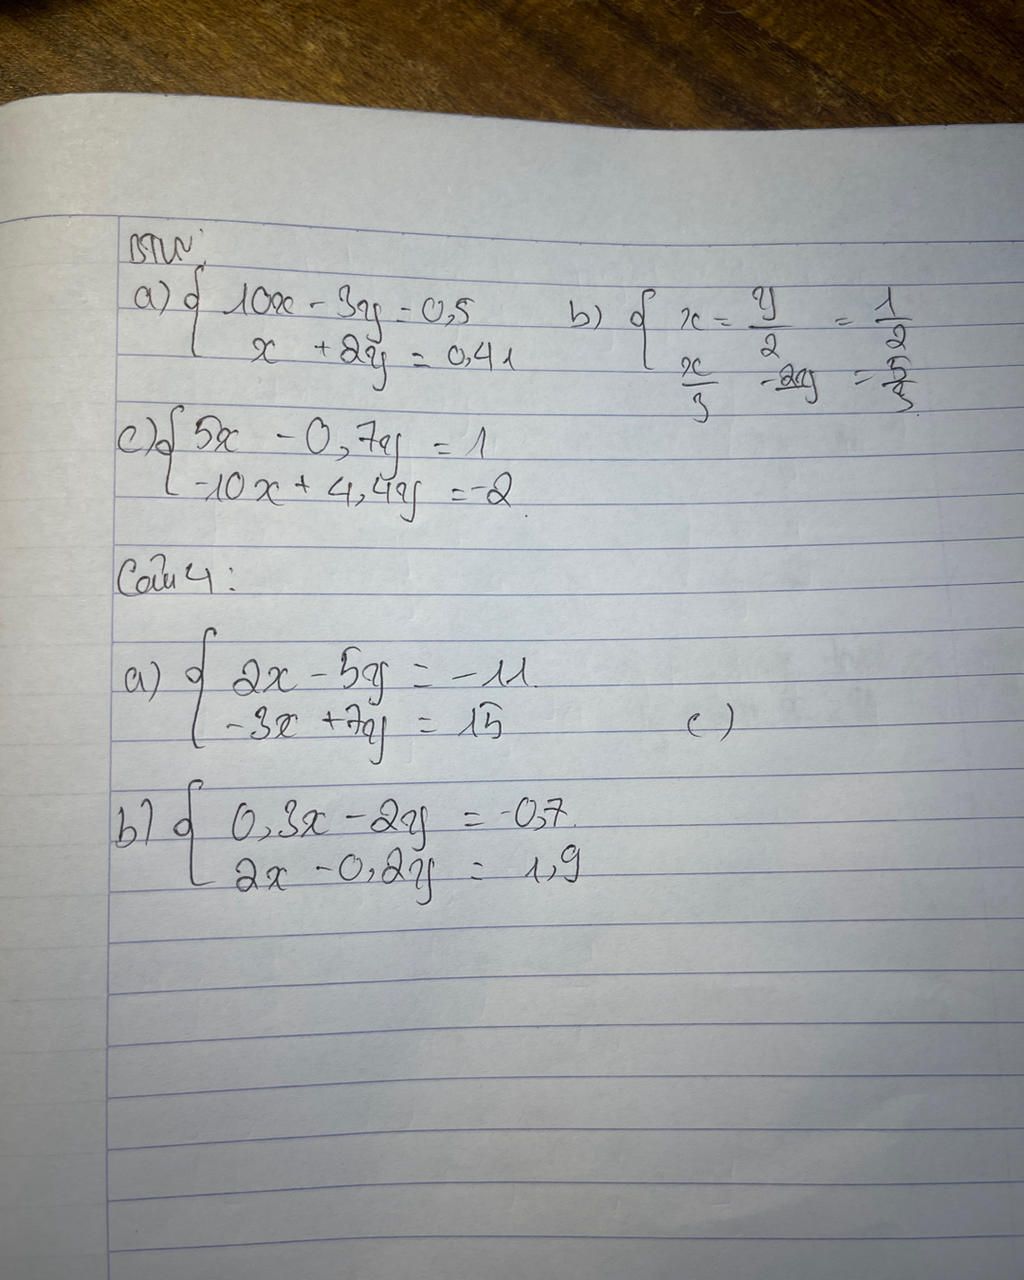 BTVN:
a) { 10x - 3y = 0,5
x + 2y = 0,41
b) { x = y/2 = 1/2
x/3 - 2y = 5/3
c) { 5x - 0,7y = 1
-10x + 4,4y = -2
Câu 4:
a) { 2x - 5y = -11
-3x + 7y = 15
c)
b) { 0,3x - 2y = -0,7
2x - 0,2y = 1,9